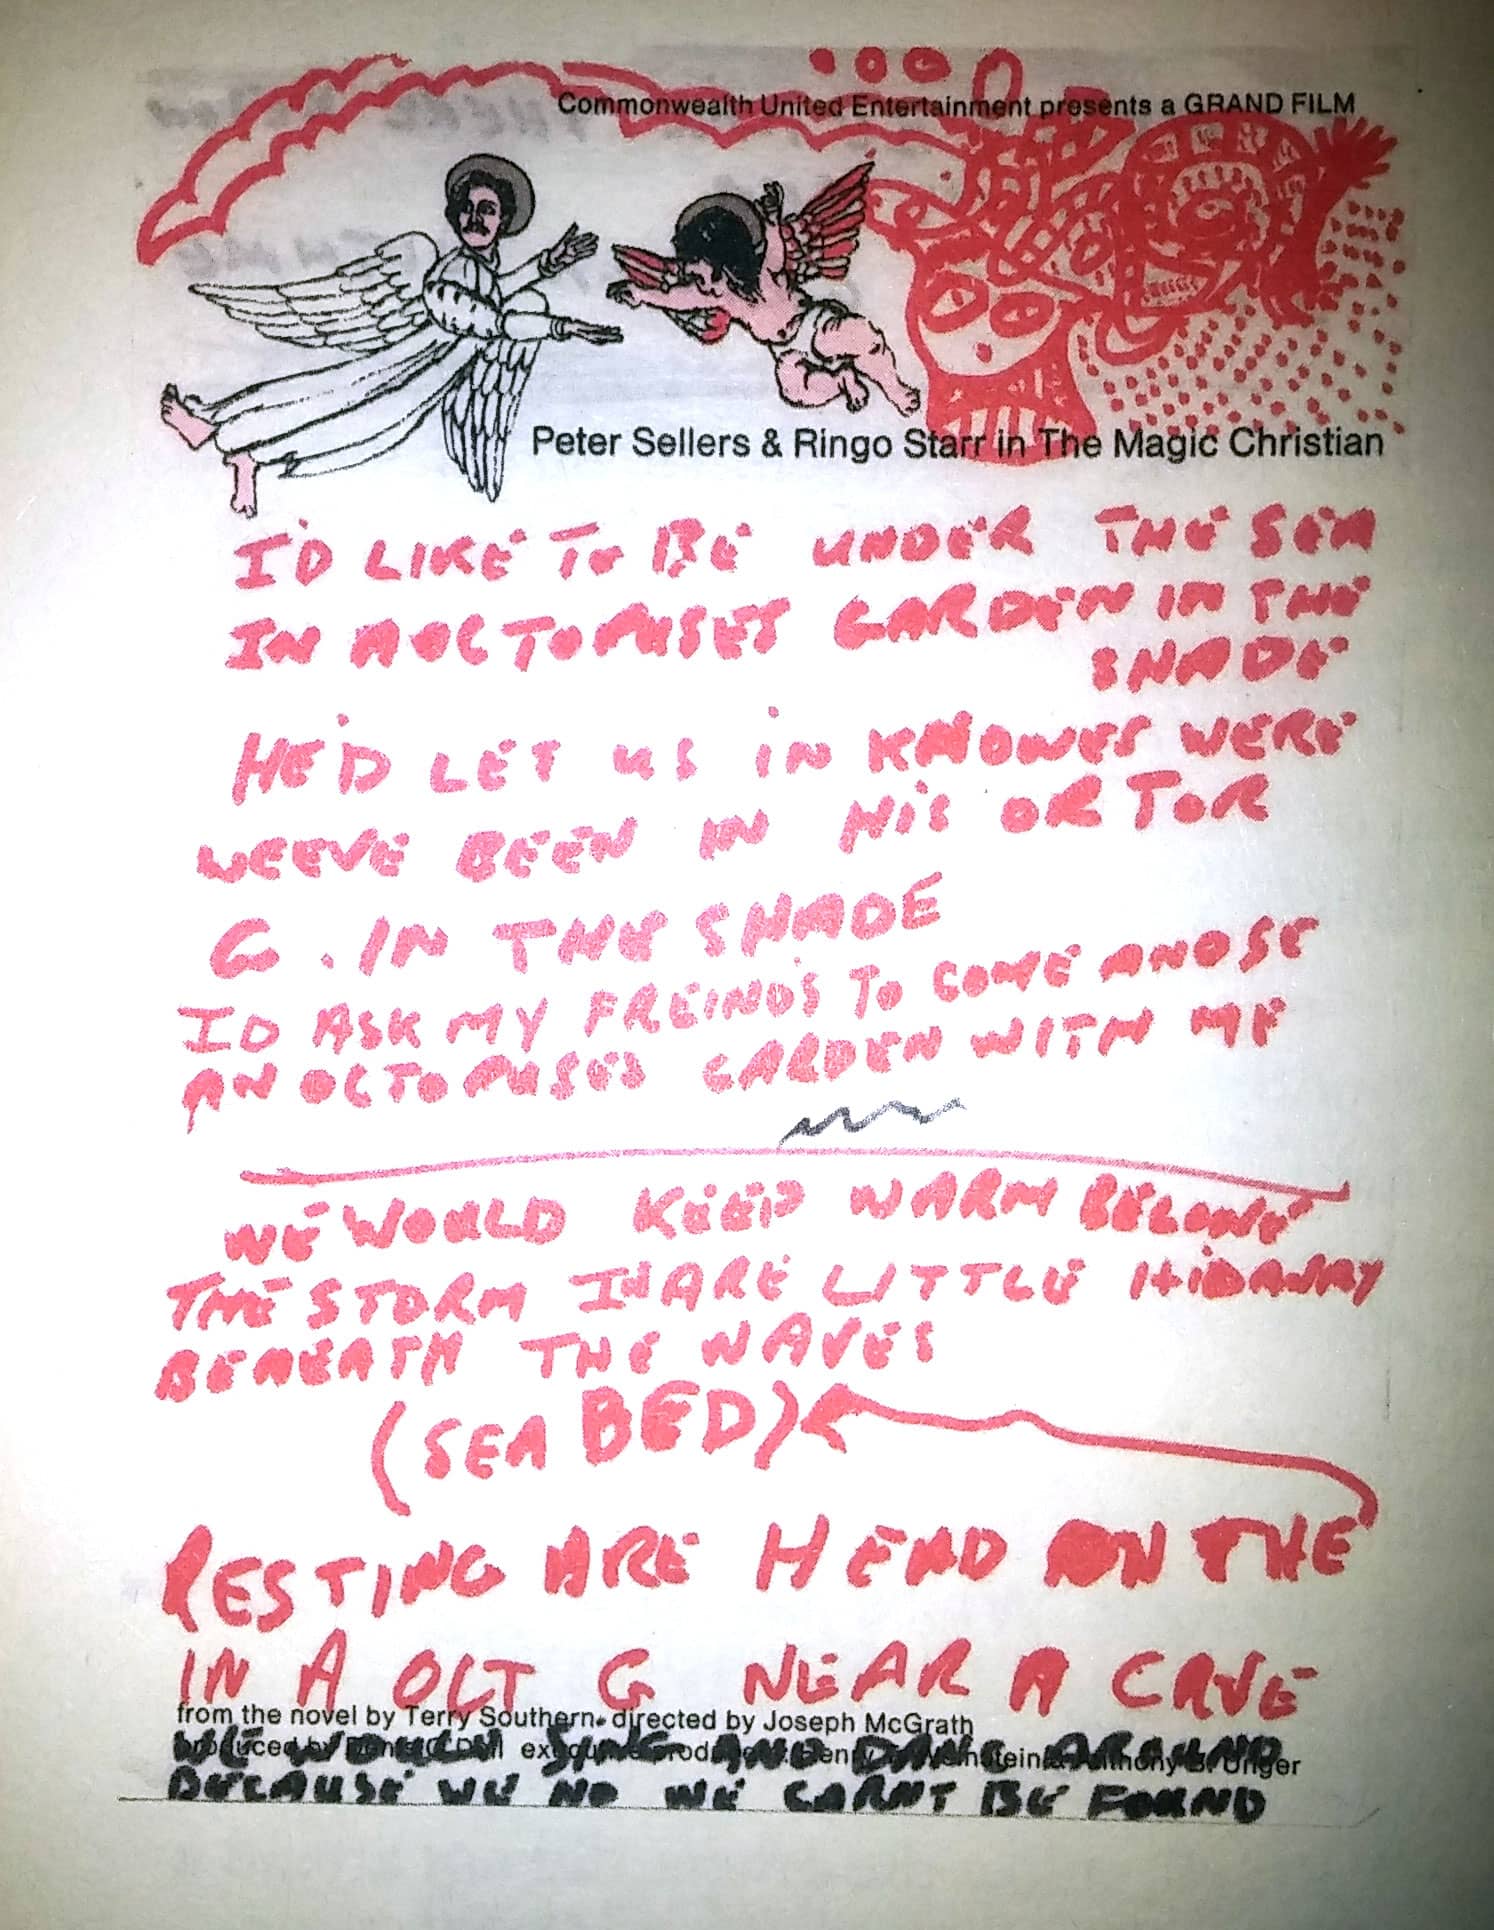 Commonwealth United Entertainment presents a GRAND FILM
Peter Sellers & Ringo Starr in The Magic Christian
I'D LIKE TO BE UNDER THE SEA
IN A OCTOPUSES GARDEN IN THE
SHADE
HE'D LET US IN KNOWES WERE
WEEVE BEEN IN HIS OR TOR
G. IN THE SHADE
ID ASK MY FREINDS TO COME ANDSE
AN OCTOPUSES GARDEN WITH ME
WE WOULD KEEP WARM BELOWE
THE STORM IN ARE LITTLE HIDAWAY
BENEATH THE WAVES
(SEA BED)
RESTING ARE HEAD ON THE
IN A OCT G NEAR A CAVE
from the novel by Terry Southern. directed by Joseph McGrath
WE SING AND DANC AROUND
BECAUSE WE NO WE CARNT BE FOUND